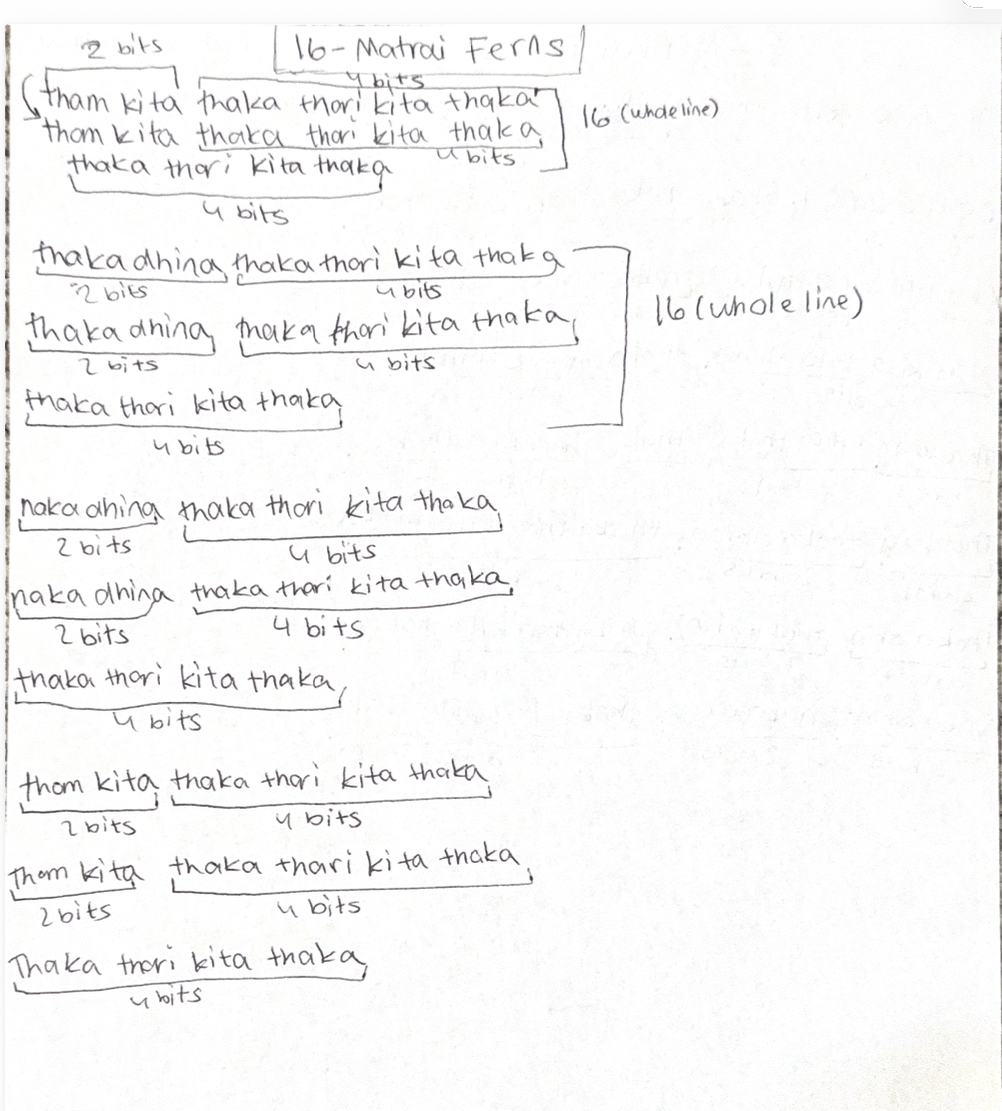 2 bits
16-Matrai Ferns
4 bits
tham kita thaka thari kita thaka
16 (whole line)
thom kita thaka thari kita thaka
4 bits
thaka thari kita thaka
4 bits
thaka dhina thaka thari kita thaka
2 bits 4 bits
16 (whole line)
thaka dhina thaka thari kita thaka
2 bits 4 bits
thaka thari kita thaka
4 bits
naka dhina thaka thari kita thaka
2 bits 4 bits
naka dhina thaka thari kita thaka
2 bits 4 bits
thaka thari kita thaka
4 bits
thom kita thaka thari kita thaka
2 bits 4 bits
Thom kita thaka thari kita thaka
2 bits 4 bits
Thaka thari kita thaka
4 bits